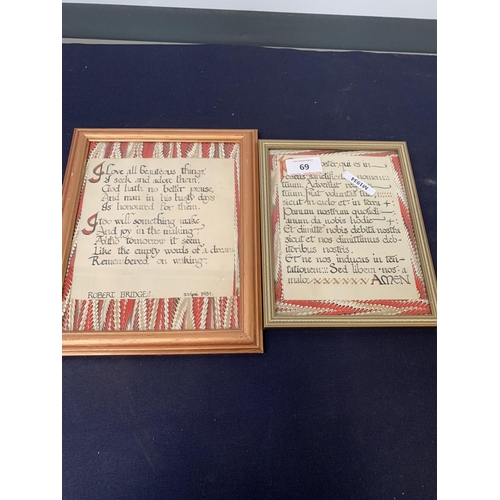 I love all beauteous things,
I seek and adore them;
God hath no better praise,
And man in his hasty days
Is honoured for them.
I too will something make
And joy in the making;
Altho' tomorrow it seem
Like the empty words of a dream
Remembered on waking.
ROBERT BRIDGES
69
noster qui es in
sanctific nomen
tuum. Adveniat
tuum. Fiat voluntas tua
sicut in cielo et in terra
Panum nostrum quotidi
anum da nobis hodie
Et dimitte nobis debita nostra
sicut et nos dimittimus deb
itoribus nostris
Et ne nos inducas in ten
tationem: Sed libera nos a
malo AMEN